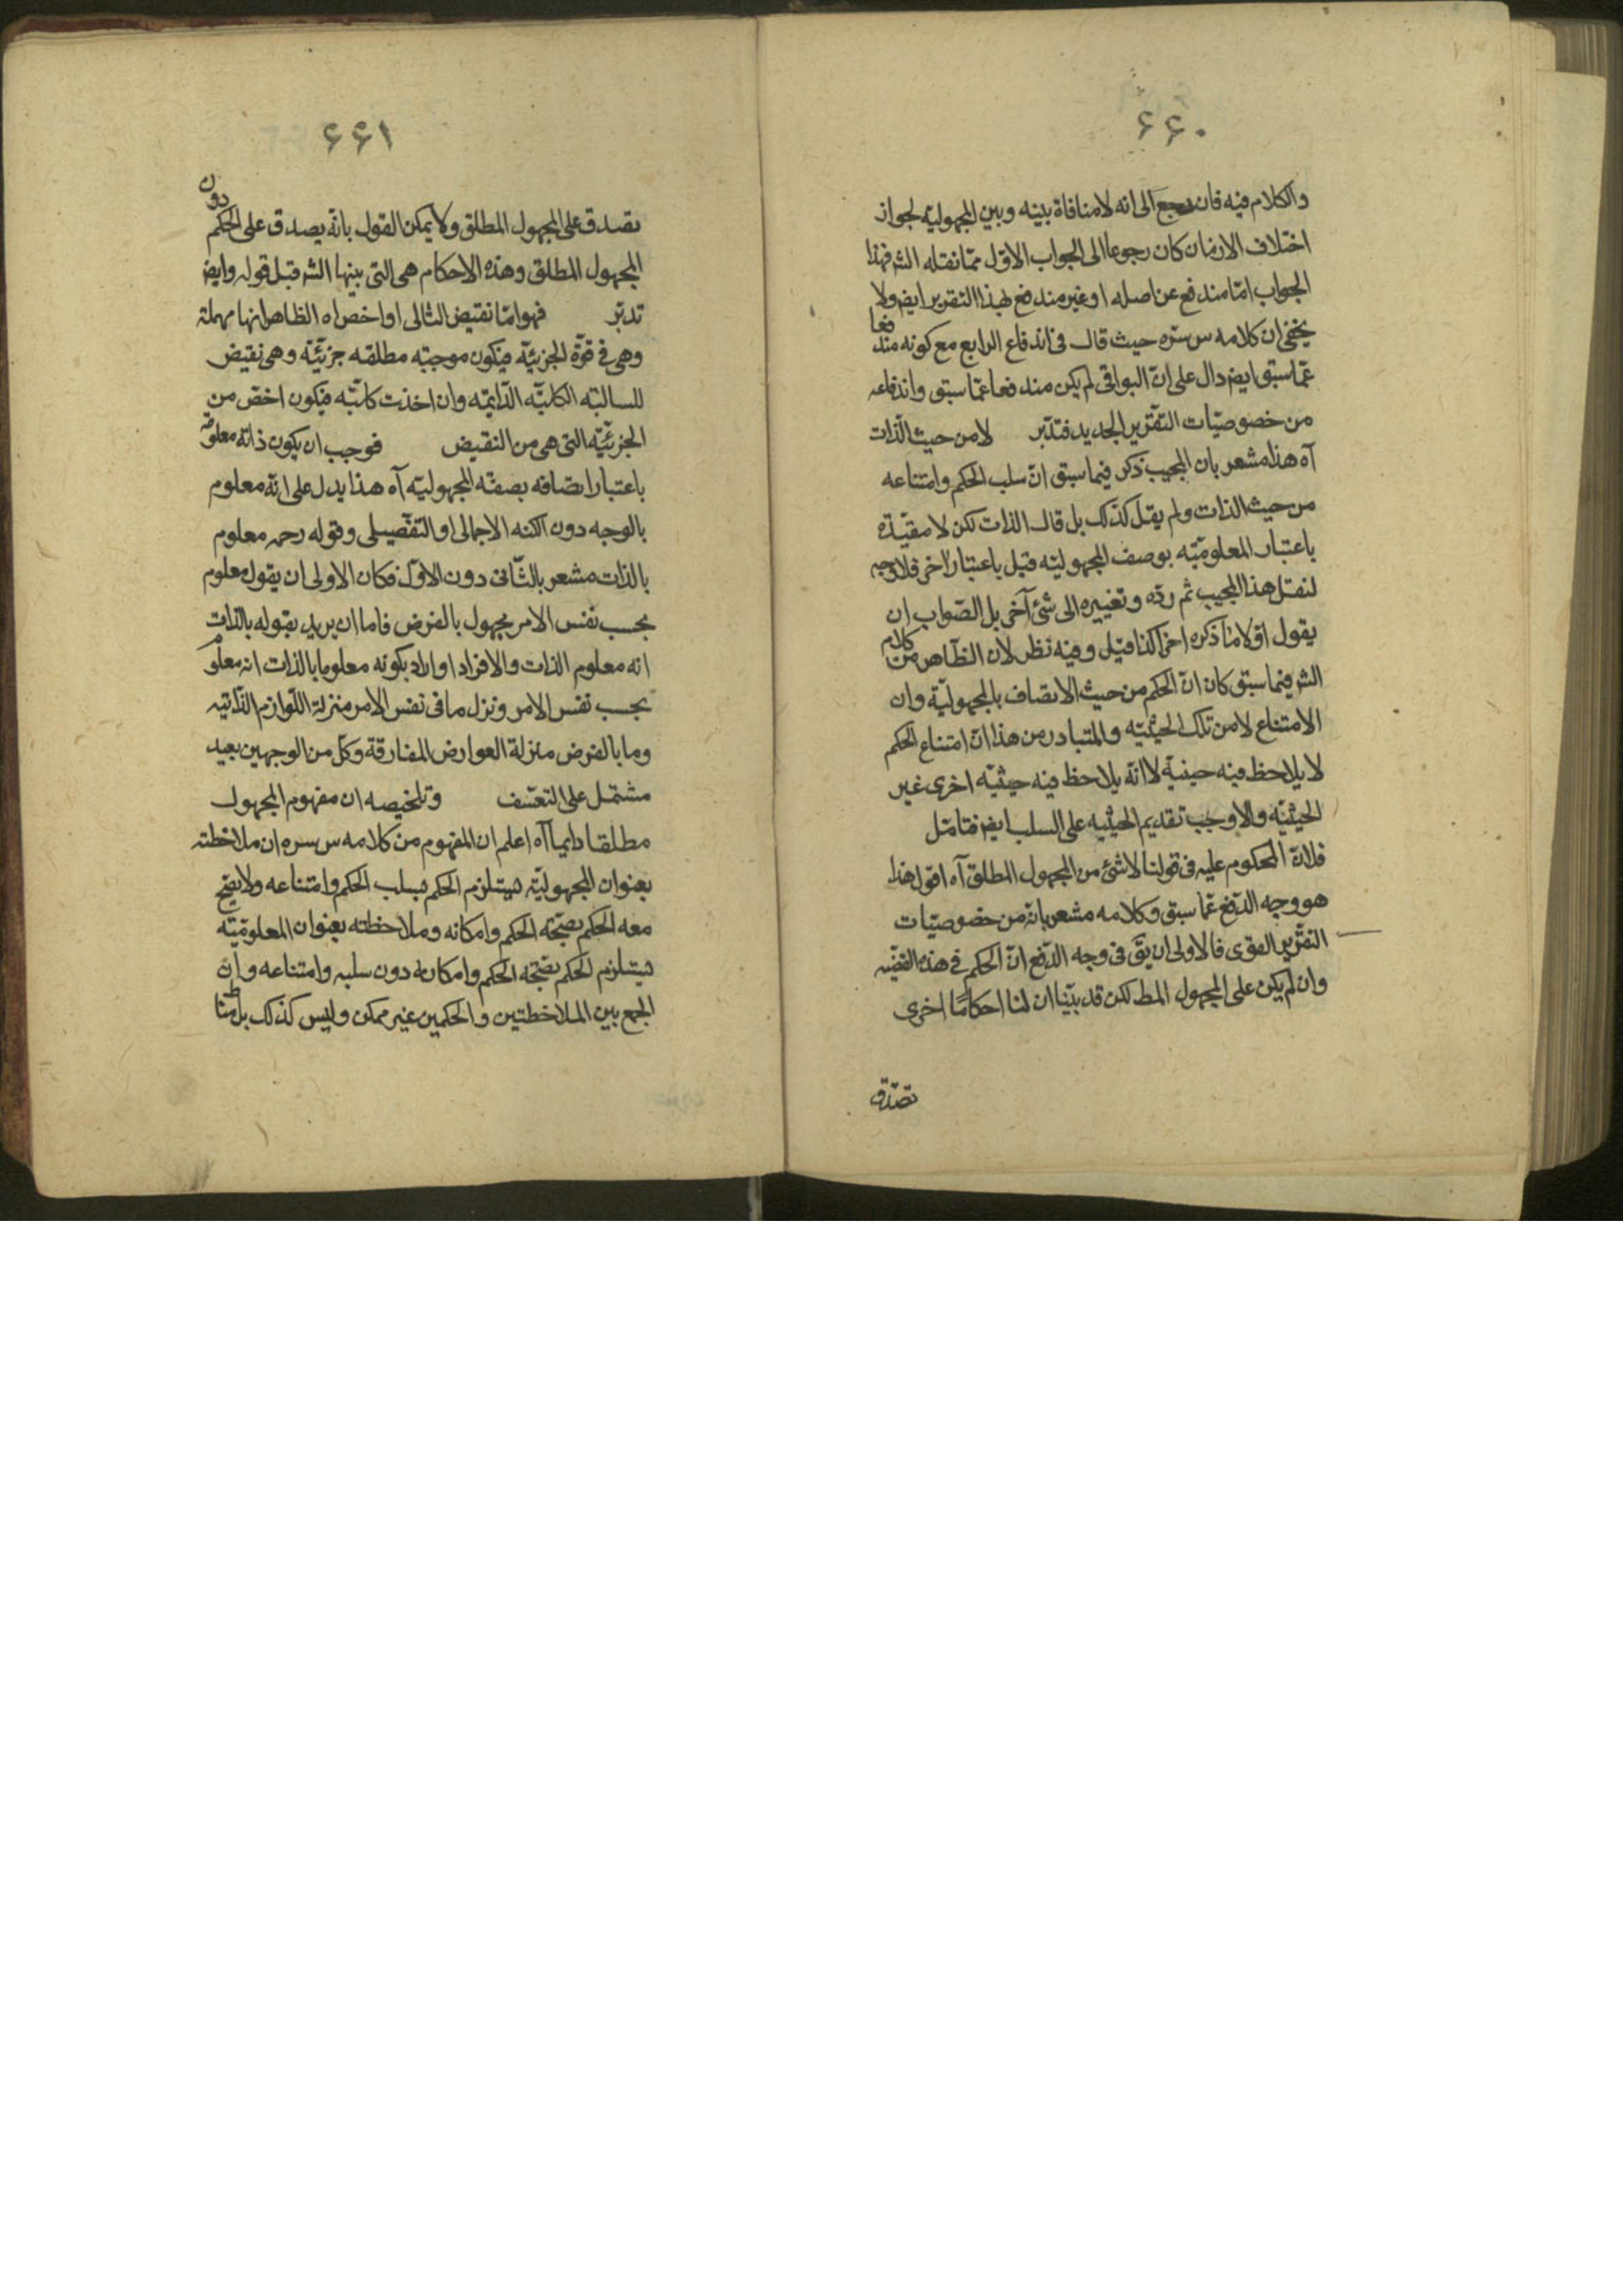 ۶۶۰
والكلام فيه فان رجع الى انه لا منافاة بينه وبين المجهولية لجواز
اختلاف الازمان كان رجوعا الى الجواب الاول مما نقله الشر فهذا
الجواب اما مندفع عن اصله او غير مندفع بهذا التقرير ايض ولا
يخفى ان كلامه س سره حيث قال فى اندفاع الرابع مع كونه مندفعا
عما سبق ايض دال على ان البواقى لم يكن مندفعا عما سبق واندفاعه
من خصوصيات التقرير الجديد فتدبر لا من حيث الذات
آه هذا مشعر بان المجيب ذكر فيما سبق ان سلب الحكم وامتناعه
من حيث الذات ولم يقل كذلك بل قال الذات لكن لا مقيدة
باعتبار المعلومية بوصف المجهولية قيل باعتبار آخر فلا وجه
لنقل هذا المجيب ثم رده وتغييره الى شئ آخر بل الصواب ان
يقول اولا ما ذكره اخرا كذا قيل وفيه نظر لان الظاهر من كلام
الشر فيما سبق كان ان الحكم من حيث الاتصاف بالمجهولية وان
الامتناع لا من تلك الحيثية والمتبادر من هذا ان امتناع الحكم
لا يلاحظ فيه حيثية لا انه يلاحظ فيه حيثية اخرى غير
الحيثية والا وجب تقديم الحيثيه على السلب ايض فتامل
فلان المحكوم عليه فى قولنا لا شئ من المجهول المطلق آه اقول هذا
هو وجه الدفع عما سبق وكلامه مشعر بانه من خصوصيات
التقرير القوى فالاولى ان يق فى وجه الدفع ان الحكم فى هذه القضيه
وان لم يكن على المجهول المط لكن قد بينا ان لنا احكاما اخرى
تصدق
۶۶۱
تصدق على المجهول المطلق ولا يمكن القول بانه يصدق على الحكم دون
المجهول المطلق وهذه الاحكام هى التى بينها الشر قبل قوله وايض
تدبر فهو اما نقيض التالى او اخص اه الظاهر انها مهملة
وهى فى قوة الجزئية فيكون موجبه مطلقه جزئية وهى نقيض
للسالبه الكلية الدايمه وان اخذت كلية فيكون اخص من
الجزئية التى هى من النقيض فوجب ان يكون ذاته معلومة
باعتبار اتصافه بصفة المجهولية آه هذا يدل على انه معلوم
بالوجه دون الكنه الاجمالى او التفصيلى وقوله رحمه معلوم
بالذات مشعر بالثانى دون الاول فكان الاولى ان يقول معلوم
بحسب نفس الامر مجهول بالفرض فاما ان يريد بقوله بالذات
انه معلوم الذات والافراد او اراد بكونه معلوما بالذات انه معلوم
بحسب نفس الامر ونزل ما فى نفس الامر منزلة اللوازم الذاتيه
وما بالفرض منزلة العوارض المفارقة وكل من الوجهين بعيد
مشتمل على التعسف وتلخيصه ان مفهوم المجهول
مطلقا دايما آه اعلم ان المفهوم من كلامه س سره ان ملاحظته
بعنوان المجهولية يستلزم الحكم بسلب الحكم وامتناعه ولا يصح
معه الحكم بصحة الحكم وامكانه وملاحظته بعنوان المعلومية
يستلزم الحكم بصحة الحكم وامكانه دون سلبه وامتناعه وان
الجمع بين الملاحظتين والحكمين غير ممكن وليس كذلك بل